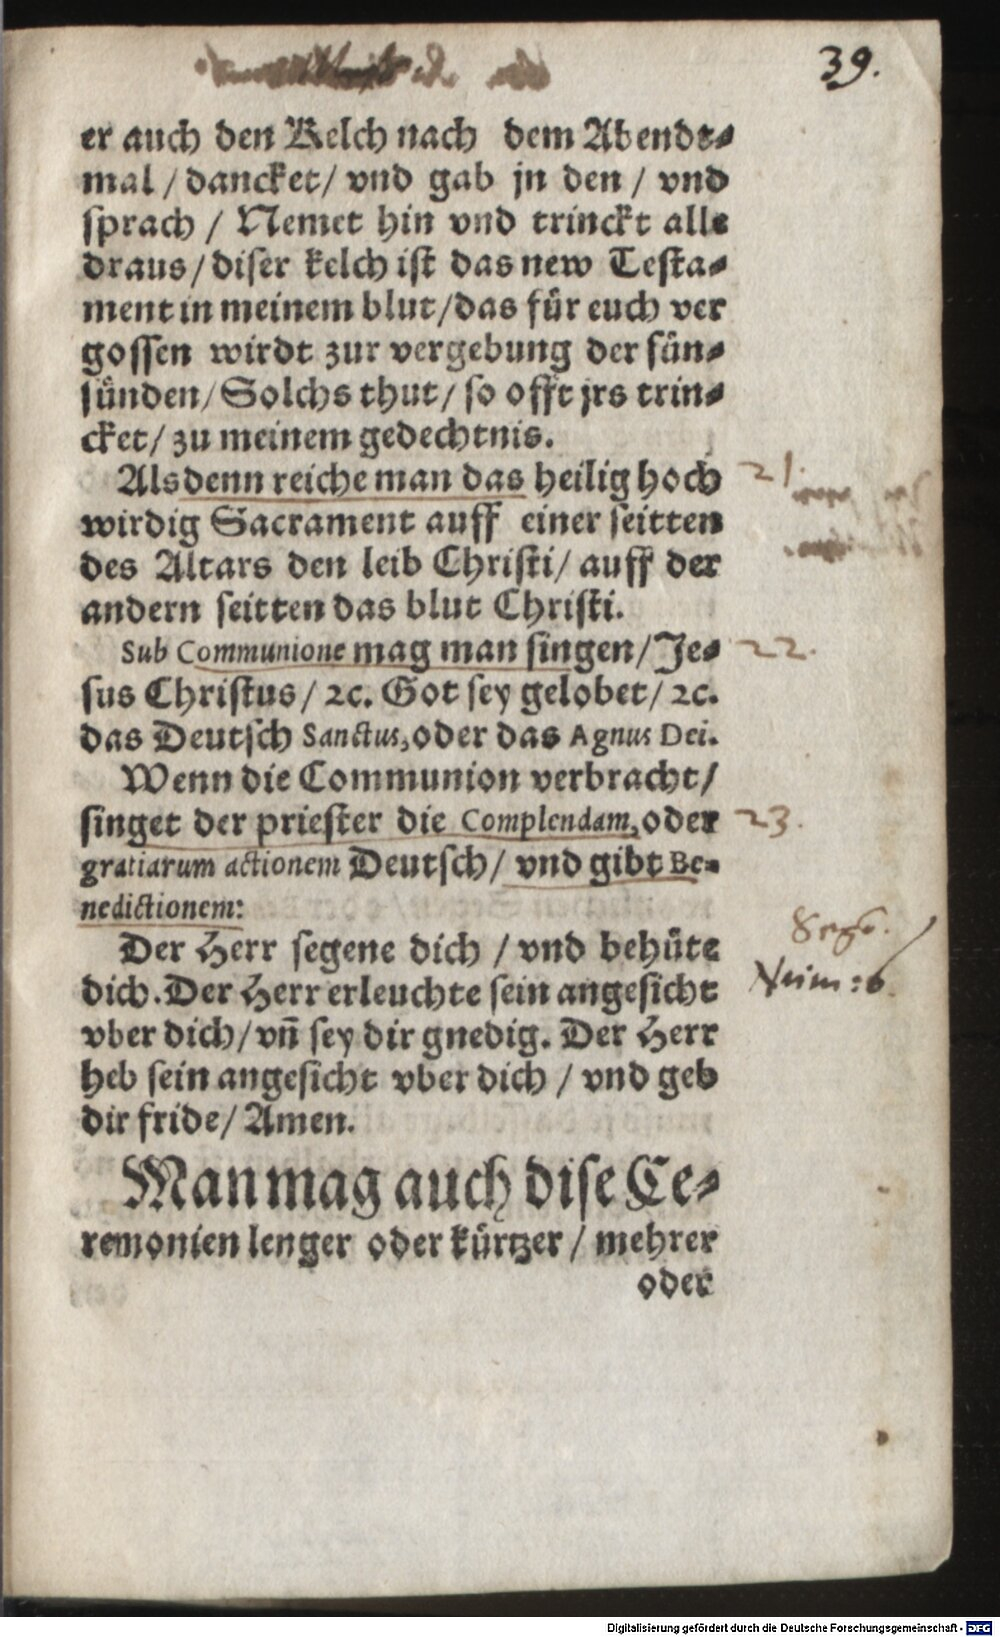 39.
er auch den Kelch nach dem Abendt-
mal / dancket / vnd gab jn den / vnd
sprach / Nemet hin vnd trinckt alle
draus / diser kelch ist das new Testa-
ment in meinem blut / das für euch ver
gossen wirdt zur vergebung der sün-
sünden / Solchs thut / so offt jrs trin-
cket / zu meinem gedechtnis.
Als denn reiche man das heilig hoch
21.
wirdig Sacrament auff einer seitten
des Altars den leib Christi / auff der
andern seitten das blut Christi.
Sub Communione mag man singen / Je-
22.
sus Christus / ꝛc. Got sey gelobet / ꝛc.
das Deutsch Sanctus, oder das Agnus Dei.
Wenn die Communion verbracht /
singet der priester die Complendam, oder
23.
gratiarum actionem Deutsch / vnd gibt Be-
nedictionem:
Der Herr segene dich / vnd behüte
dich. Der Herr erleuchte sein angesicht
Num: 6.
vber dich / vn̄ sey dir gnedig. Der Herr
heb sein angesicht vber dich / vnd geb
dir fride / Amen.
Man mag auch dise Ce-
remonien lenger oder kürtzer / mehrer
oder
Digitalisierung gefördert durch die Deutsche Forschungsgemeinschaft - DFG